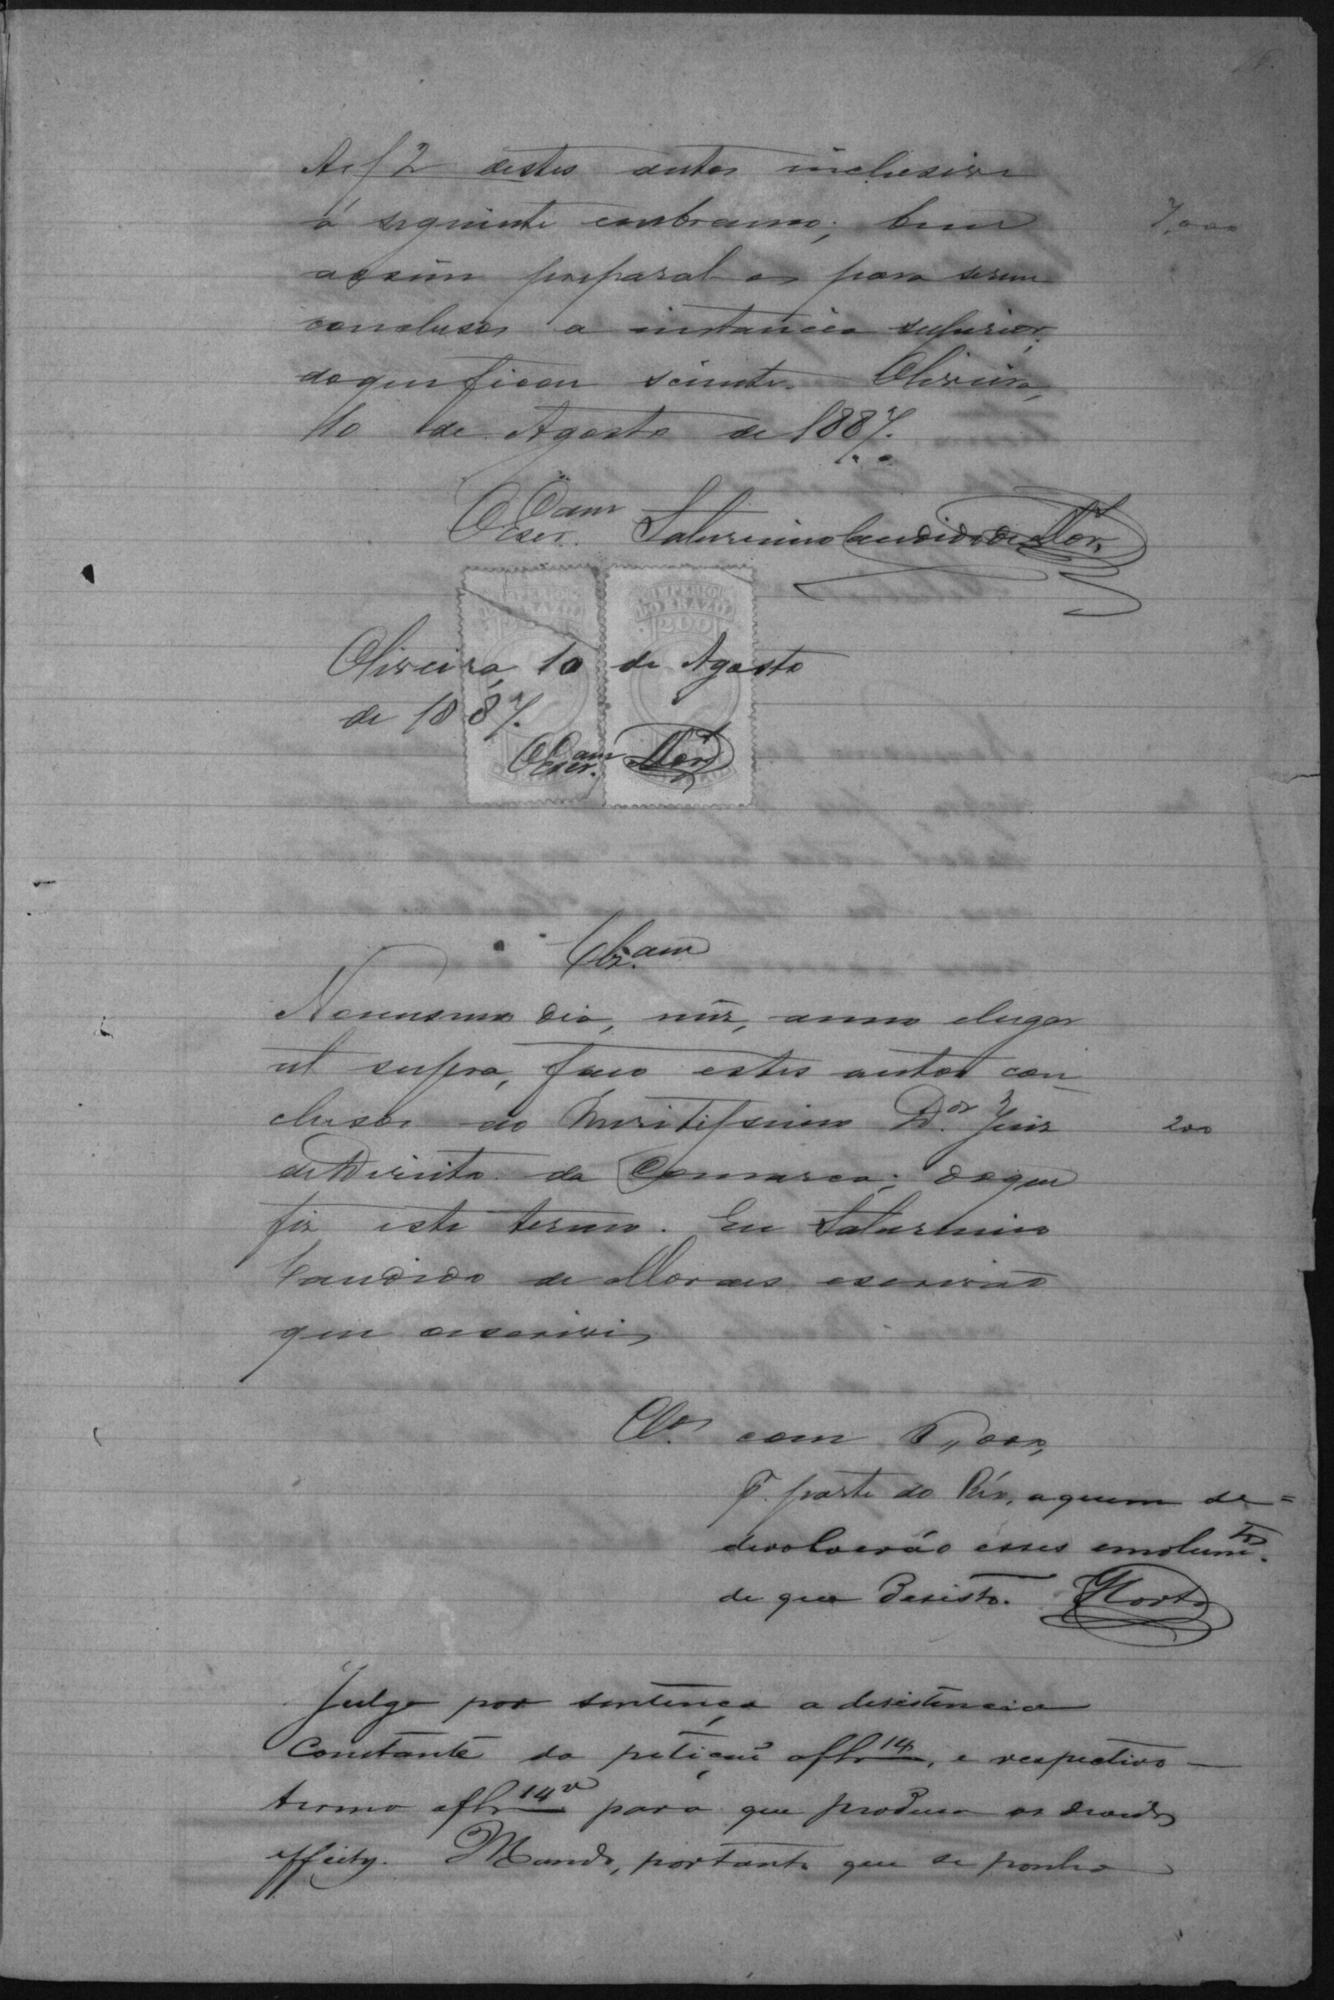 De f 2 destes autos inclusive
á seguinte em branco; bem
assim preparal os para serem
conclusos a instancia superior,
do que ficou sciente. Oliveira,
10 de Agosto de 1887.
7,000
O Escr.am Saturnino Candido de Mor.
IMPERIO DO BRAZIL
200
Oliveira, 10 de Agosto
de 1887.
O Escr.am Mor.
Clz.am
No mesmo dia, mez, anno e lugar
ut supra, faço estes autos con-
clusos ao Meritissimo D.or Juiz
200
de Direito da Comarca; do que
fiz este termo. Eu Saturnino
Candido de Moraes escrivão
que escrevi
Cl.os com 5,000,
P. parte do Réo, a quem de=
devolverão esses emolum.tos
de que desisto. Horta
Julgo por sentença a desistencia
constante da petição a fls 14, e respectivo
termo a fls 14 v para que produza os devidos
effeitos. Mando, portanto que se ponha